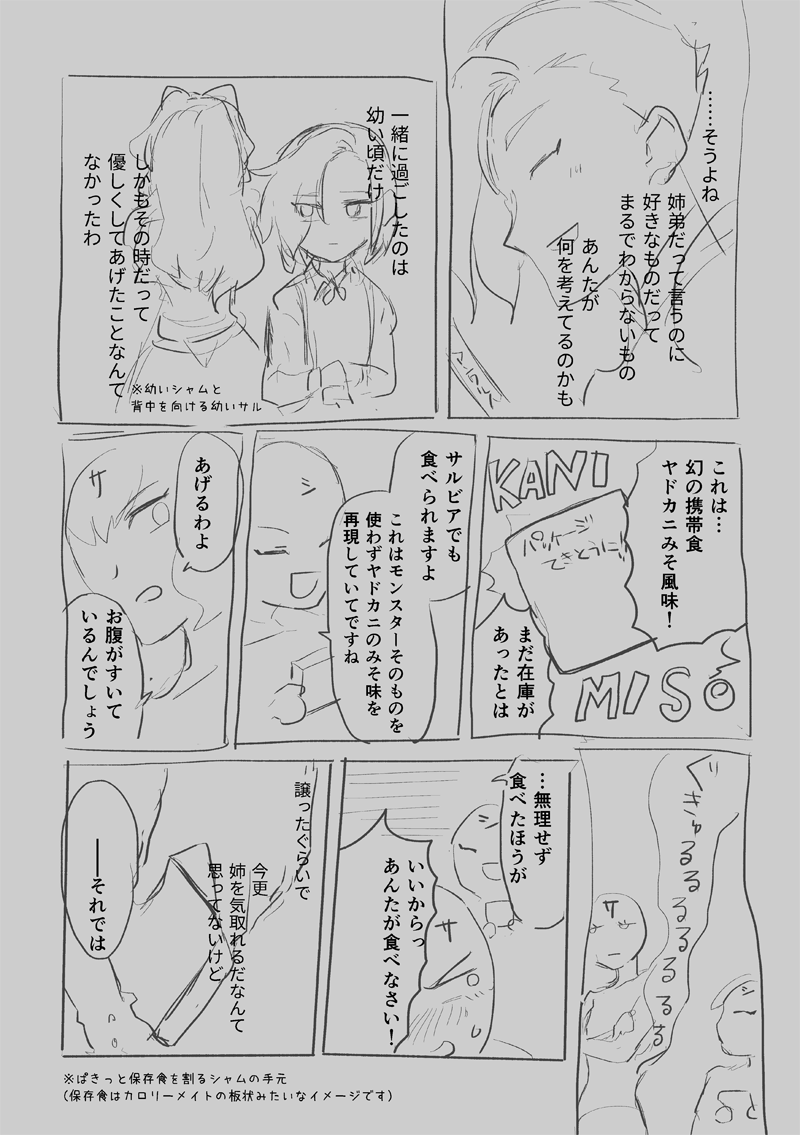 ……そうよね
姉弟だって言うのに
好きなものだって
まるでわからないもの
あんたが
何を考えてるのかも
一緒に過ごしたのは
幼い頃だけ
しかもその時だって
優しくしてあげたことなんて
なかったわ
※幼いシャムと
背中を向ける幼いサル
これは…
幻の携帯食
ヤドカニみそ風味！
KANI
パッケージ
てきとうに!
MISO
まだ在庫が
あったとは
サルビアでも
食べられますよ
これはモンスターそのものを
使わずヤドカニのみそ味を
再現していてですね
シ
あげるわよ
サ
お腹がすいて
いるんでしょう
ぐきゅるるるるるるる
サ
シ
…無理せず
食べたほうが
シ
いいからっ
あんたが食べなさい！
サ
譲ったぐらいで
今更
姉を気取れるだなんて
思ってないけど
──それでは
※ぱきっと保存食を割るシャムの手元
(保存食はカロリーメイトの板状みたいなイメージです)